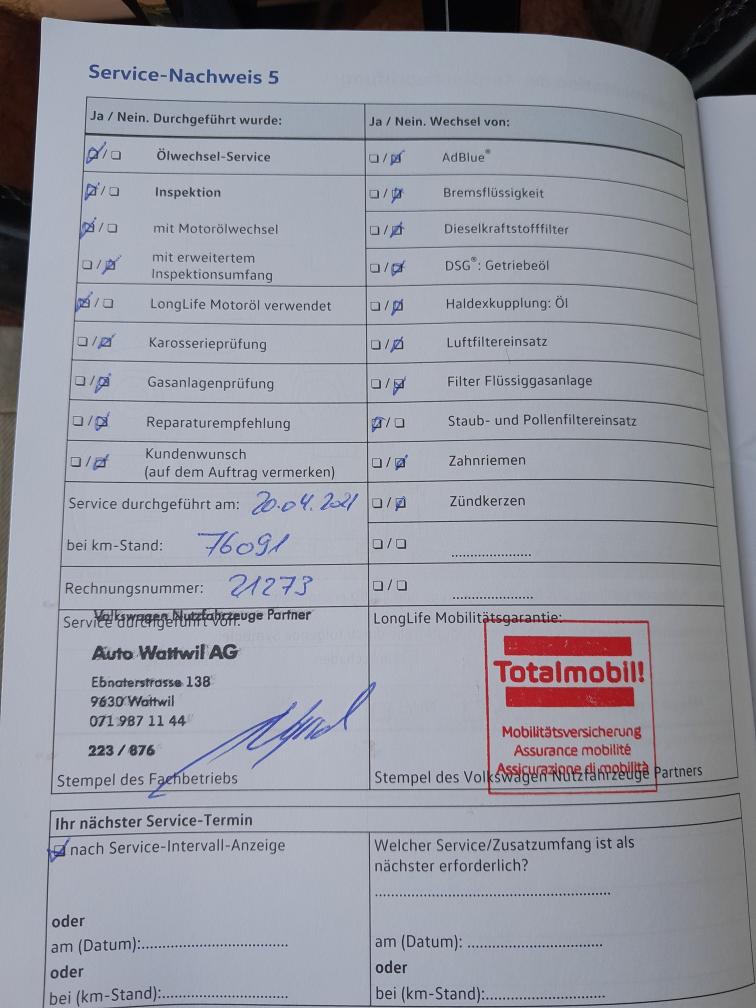 Service-Nachweis 5
Ja / Nein. Durchgeführt wurde:
Ölwechsel-Service
Inspektion
mit Motorölwechsel
mit erweitertem
Inspektionsumfang
LongLife Motoröl verwendet
Karosserieprüfung
Gasanlagenprüfung
Reparaturempfehlung
Kundenwunsch
(auf dem Auftrag vermerken)
Service durchgeführt am: 20.04.2021
bei km-Stand: 76091
Rechnungsnummer: 21273
Ja / Nein. Wechsel von:
AdBlue®
Bremsflüssigkeit
Dieselkraftstofffilter
DSG®: Getriebeöl
Haldexkupplung: Öl
Luftfiltereinsatz
Filter Flüssiggasanlage
Staub- und Pollenfiltereinsatz
Zahnriemen
Zündkerzen
Service durchgeführt von:
Volkswagen Nutzfahrzeuge Partner
Auto Wattwil AG
Ebnaterstrasse 138
9630 Wattwil
071 987 11 44
223 / 876
Stempel des Fachbetriebs
LongLife Mobilitätsgarantie:
Totalmobil!
Mobilitätsversicherung
Assurance mobilité
Assicurazione di mobilità
Stempel des Volkswagen Nutzfahrzeuge Partners
Ihr nächster Service-Termin
nach Service-Intervall-Anzeige
oder
am (Datum):
oder
bei (km-Stand):
Welcher Service/Zusatzumfang ist als
nächster erforderlich?
am (Datum):
oder
bei (km-Stand):